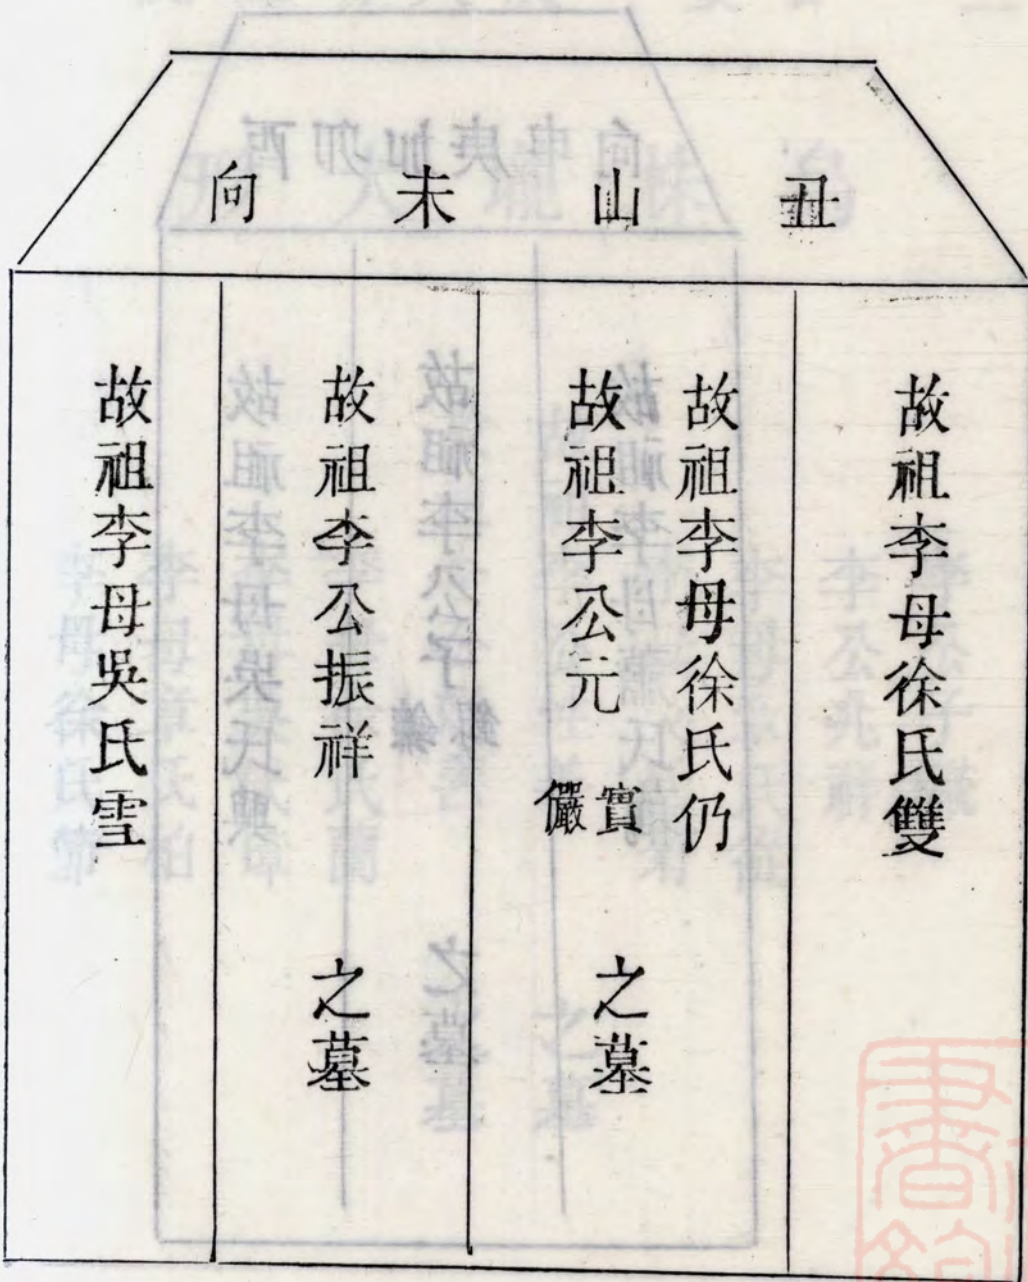 丑山未向
故祖李母徐氏雙
故祖李母徐氏仍
故祖李公元實儼之墓
故祖李公振祥之墓
故祖李母吳氏雪